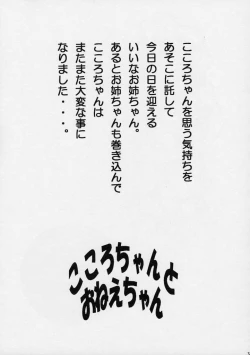 こころちゃんを思う気持ちを
あそこに託して
今日の日を迎える
いいなお姉ちゃん。
あるとお姉ちゃんも巻き込んで
こころちゃんは
またまた大変な事に
なりました・・・。
こころちゃんと
おねえちゃん